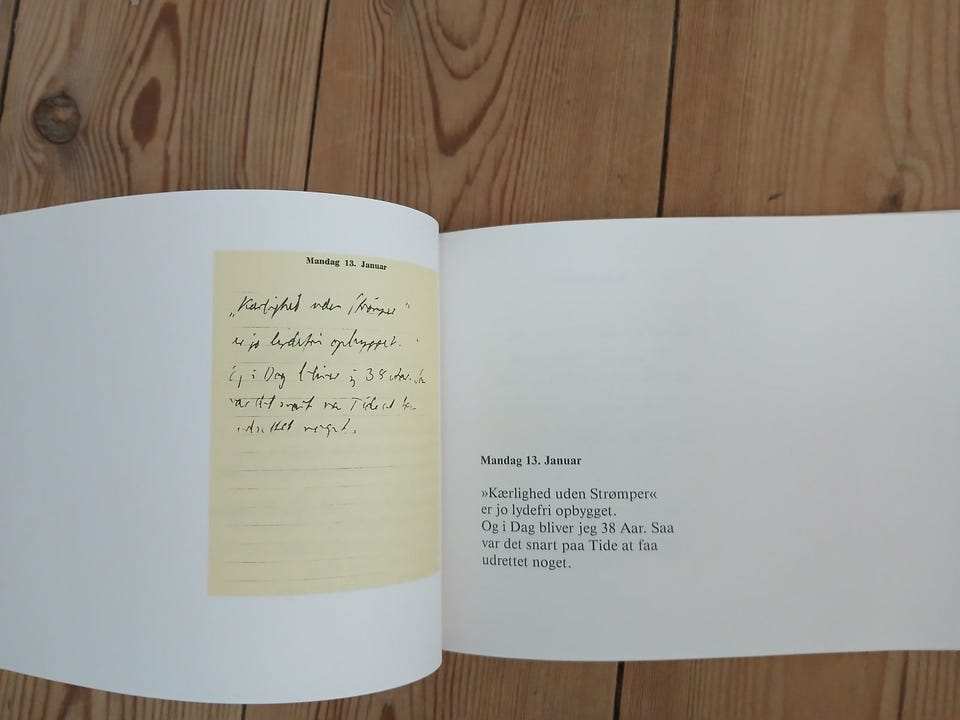 Mandag 13. Januar
„Kærlighed uden Strømper"
er jo lydefri opbygget.
Og i Dag bliver jeg 38 Aar. Saa
var det snart paa Tide at faa
udrettet noget.
Mandag 13. Januar
»Kærlighed uden Strømper«
er jo lydefri opbygget.
Og i Dag bliver jeg 38 Aar. Saa
var det snart paa Tide at faa
udrettet noget.